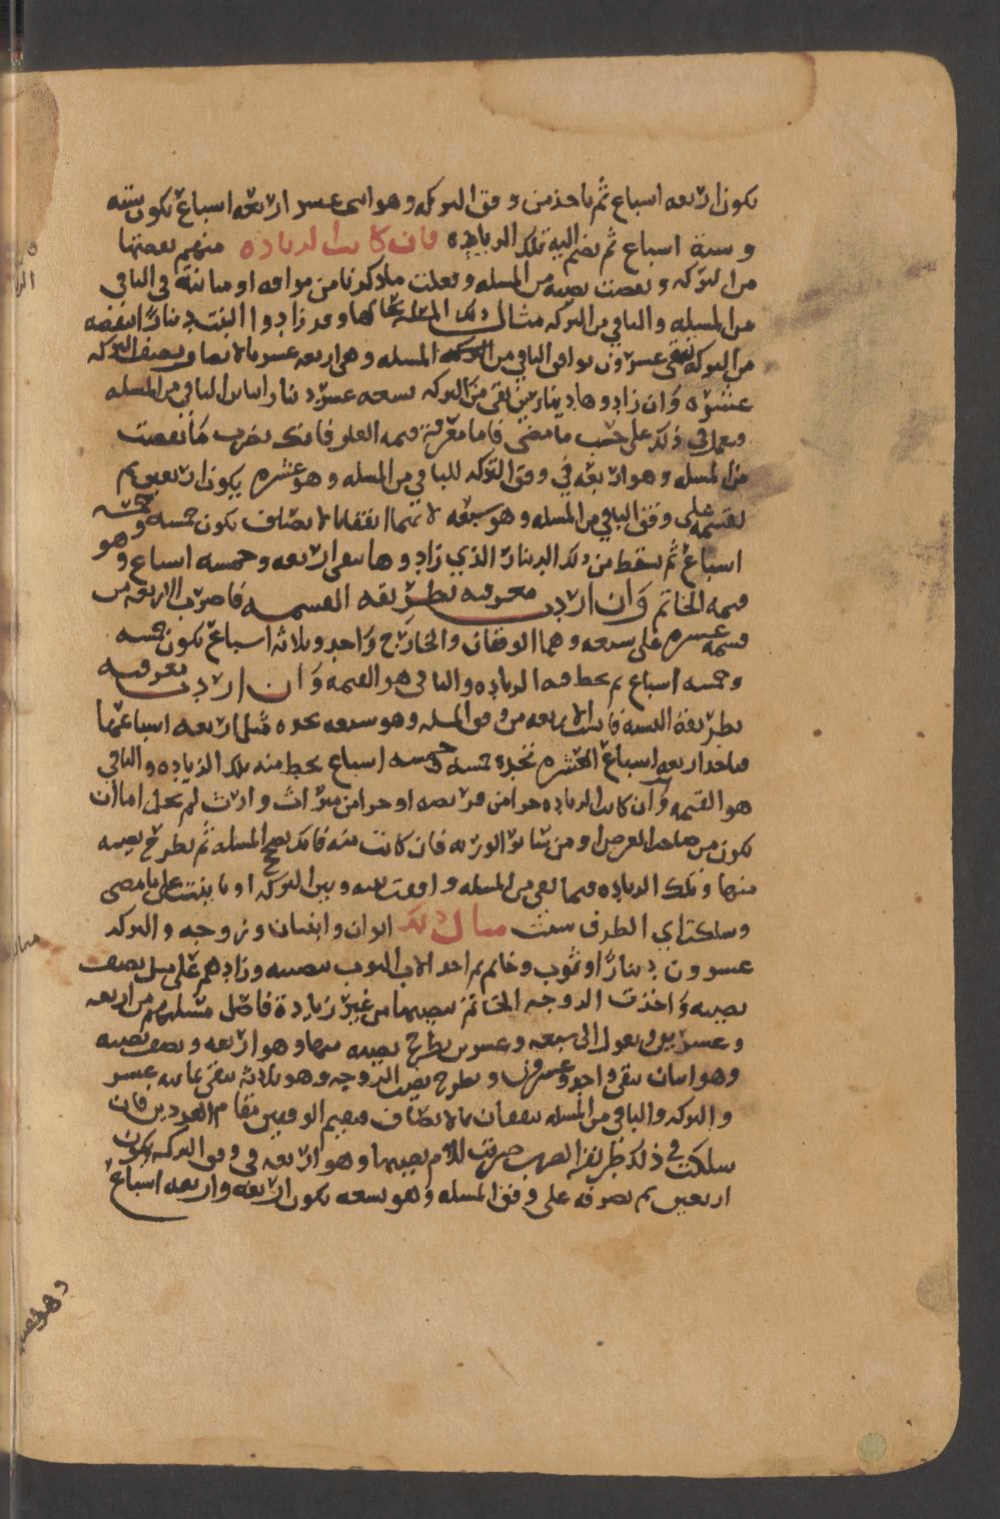 تكون اربعه اسباع ثم تاخذ من وفق التركه وهو اثنى عشر اربعه اسباع تكون سته
وستة اسباع ثم تضم اليه تلك الزياده فان كانت الزياده منهم بعضها
من التركه ونقصت نصيبه من المسله وفعلت ما ذكرنا من موافقه او مباينة في الباقي
من المسله والباقي من التركه مثال ذلك المسله بحالها وقد زادوا البنت دينارًا انقصه
من التركه تبقى عشرون توافق الباقي من المسله وهي اربعه عشر بالانصاف ونصف التركه
عشرة وان زادوها دينارين بقى من التركه تسعه عشر دينارا تباين الباقي من المسله
وتعمل في ذلك على حسب ما مضى فاما معرفة قيمه فانك تضرب ما نقصت
من المسله وهو اربعه في وفق التركه للباقي من المسله وهو عشره يكون اربعين ثم
تقسمه على وفق الباقي من المسله وهو سبعه لانهما اتفقا بالانصاف تكون خمسه وخمسه
اسباع ثم تسقط من ذلك الدينار الذي زادوها تبقى اربعه وخمسه اسباع وهو
قيمه الخاتم وان اردت معرفته بطريقه القسمه فاضرب الاربعه في
قسمه عشره على سبعه وهما الوفقان والخارج واحد وثلاثه اسباع تكون خمسه
وخمسه اسباع ثم تحط منه الزياده والباقي هو القيمه وان اردت معرفته
بطريقة النسبه فانسب الاربعه من وفق المسله وهو سبعه تجده مثل اربعه اسباعها
فتاخذ اربعه اسباع العشره تجده خمسه وخمسه اسباع تحط منه تلك الزياده والباقي
هو القيمه وان كانت الزياده جزا من فريضه او جزا من ميراث وارث لم يخل اما ان
تكون من صاحب العرض او من سائر الورثه فان كانت منه فانك تصحح المسله ثم تطرح نصيبه
منها وتلك الزياده فما بقى من المسله وافقت بينه وبين التركه او باينت على ما مضى
وسلكت اي الطرق شئت مثال ذلك ابوان وابنتان وزوجه والتركه
عشرون دينارًا وثوب وخاتم ثم اخذ الاب الثوب بنصيبه وزادهم على مثل نصف
نصيبه واخذت الزوجه الخاتم بنصيبها من غير زيادة فاصل مسلتهم من اربعه
وعشرين وتعول الى سبعه وعشرين تطرح نصيبه منها وهو اربعه ونصف نصيبه
وهو اثنان تبقى واحد وعشرون وتطرح نصيب الزوجه وهو ثلاثه تبقى ثمانيه عشر
والتركه والباقي من المسله تتفقان بالانصاف فتقيم الوفقين مقام العددين فان
سلكت في ذلك طريقة الضرب ضربت للام نصيبها وهو اربعه في وفق التركه يكون
اربعين ثم تصرفه على وفق المسله وهو تسعه تكون اربعه واربعه اسباع